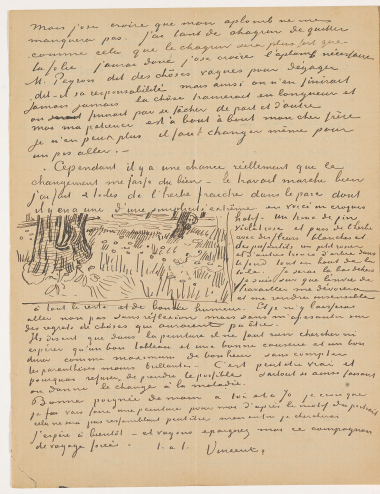 Mais j'ose croire que mon aplomb ne me
manquera pas. j'ai tant de chagrin de quitter
comme cela que le chagrin sera plus fort que
la folie j'aurai donc j'ose croire l'aplomb nécessaire
M. Peyron dit des chôses vagues pour dégager
dit-il sa responsabilité mais ainsi on n'en finirait
jamais jamais la chôse trainerait en longueur et
on finirait par se facher de part et d'autre
moi ma patience est à bout à bout mon cher frère
je n'en peux plus il faut changer même pour
un pis aller. –
Cependant il y a une chance réellement que le
changement me fasse du bien – le travail marche bien
j'ai fait 2 toiles de l'herbe fraiche dans le parc dont
il y en a une d'une simplicité extrême en voici un croquis
hatif. Un tronc de pin
violet rose et puis de l'herbe
avec des fleurs blanches et
des pissenlits un petit rosier
et d'autres troncs d'arbre dans
le fond tout en haut de la
toile. Je serai la bas dehors
je suis sûr que l'envie de
travailler me dévorera
et me rendra insensible
à tout le reste et de bonne humeur. Et je m'y laisserai
aller non pas sans réflexion mais sans m'appesantir sur
des regrets de chôses qui auraient pu être.
Ils disent que dans la peinture il ne faut rien chercher ni
espérer qu'un bon tableau et une bonne causerie et un bon
diner comme maximum de bonheur sans compter
les parenthèses moins brillantes. – C'est peutetre vrai et
pourquoi refuser de prendre le possible surtout si ainsi faisant
on donne le change à la maladie.
Bonne poignée de main à toi et à Jo je crois que
je fais une peinture pour moi d'après le motif du portrait
cela ne sera pas ressemblant peutêtre mais enfin je chercherai
j'espère à bientôt – et voyons épargnez moi ce compagnon
de voyage forcé. t. à t. Vincent.